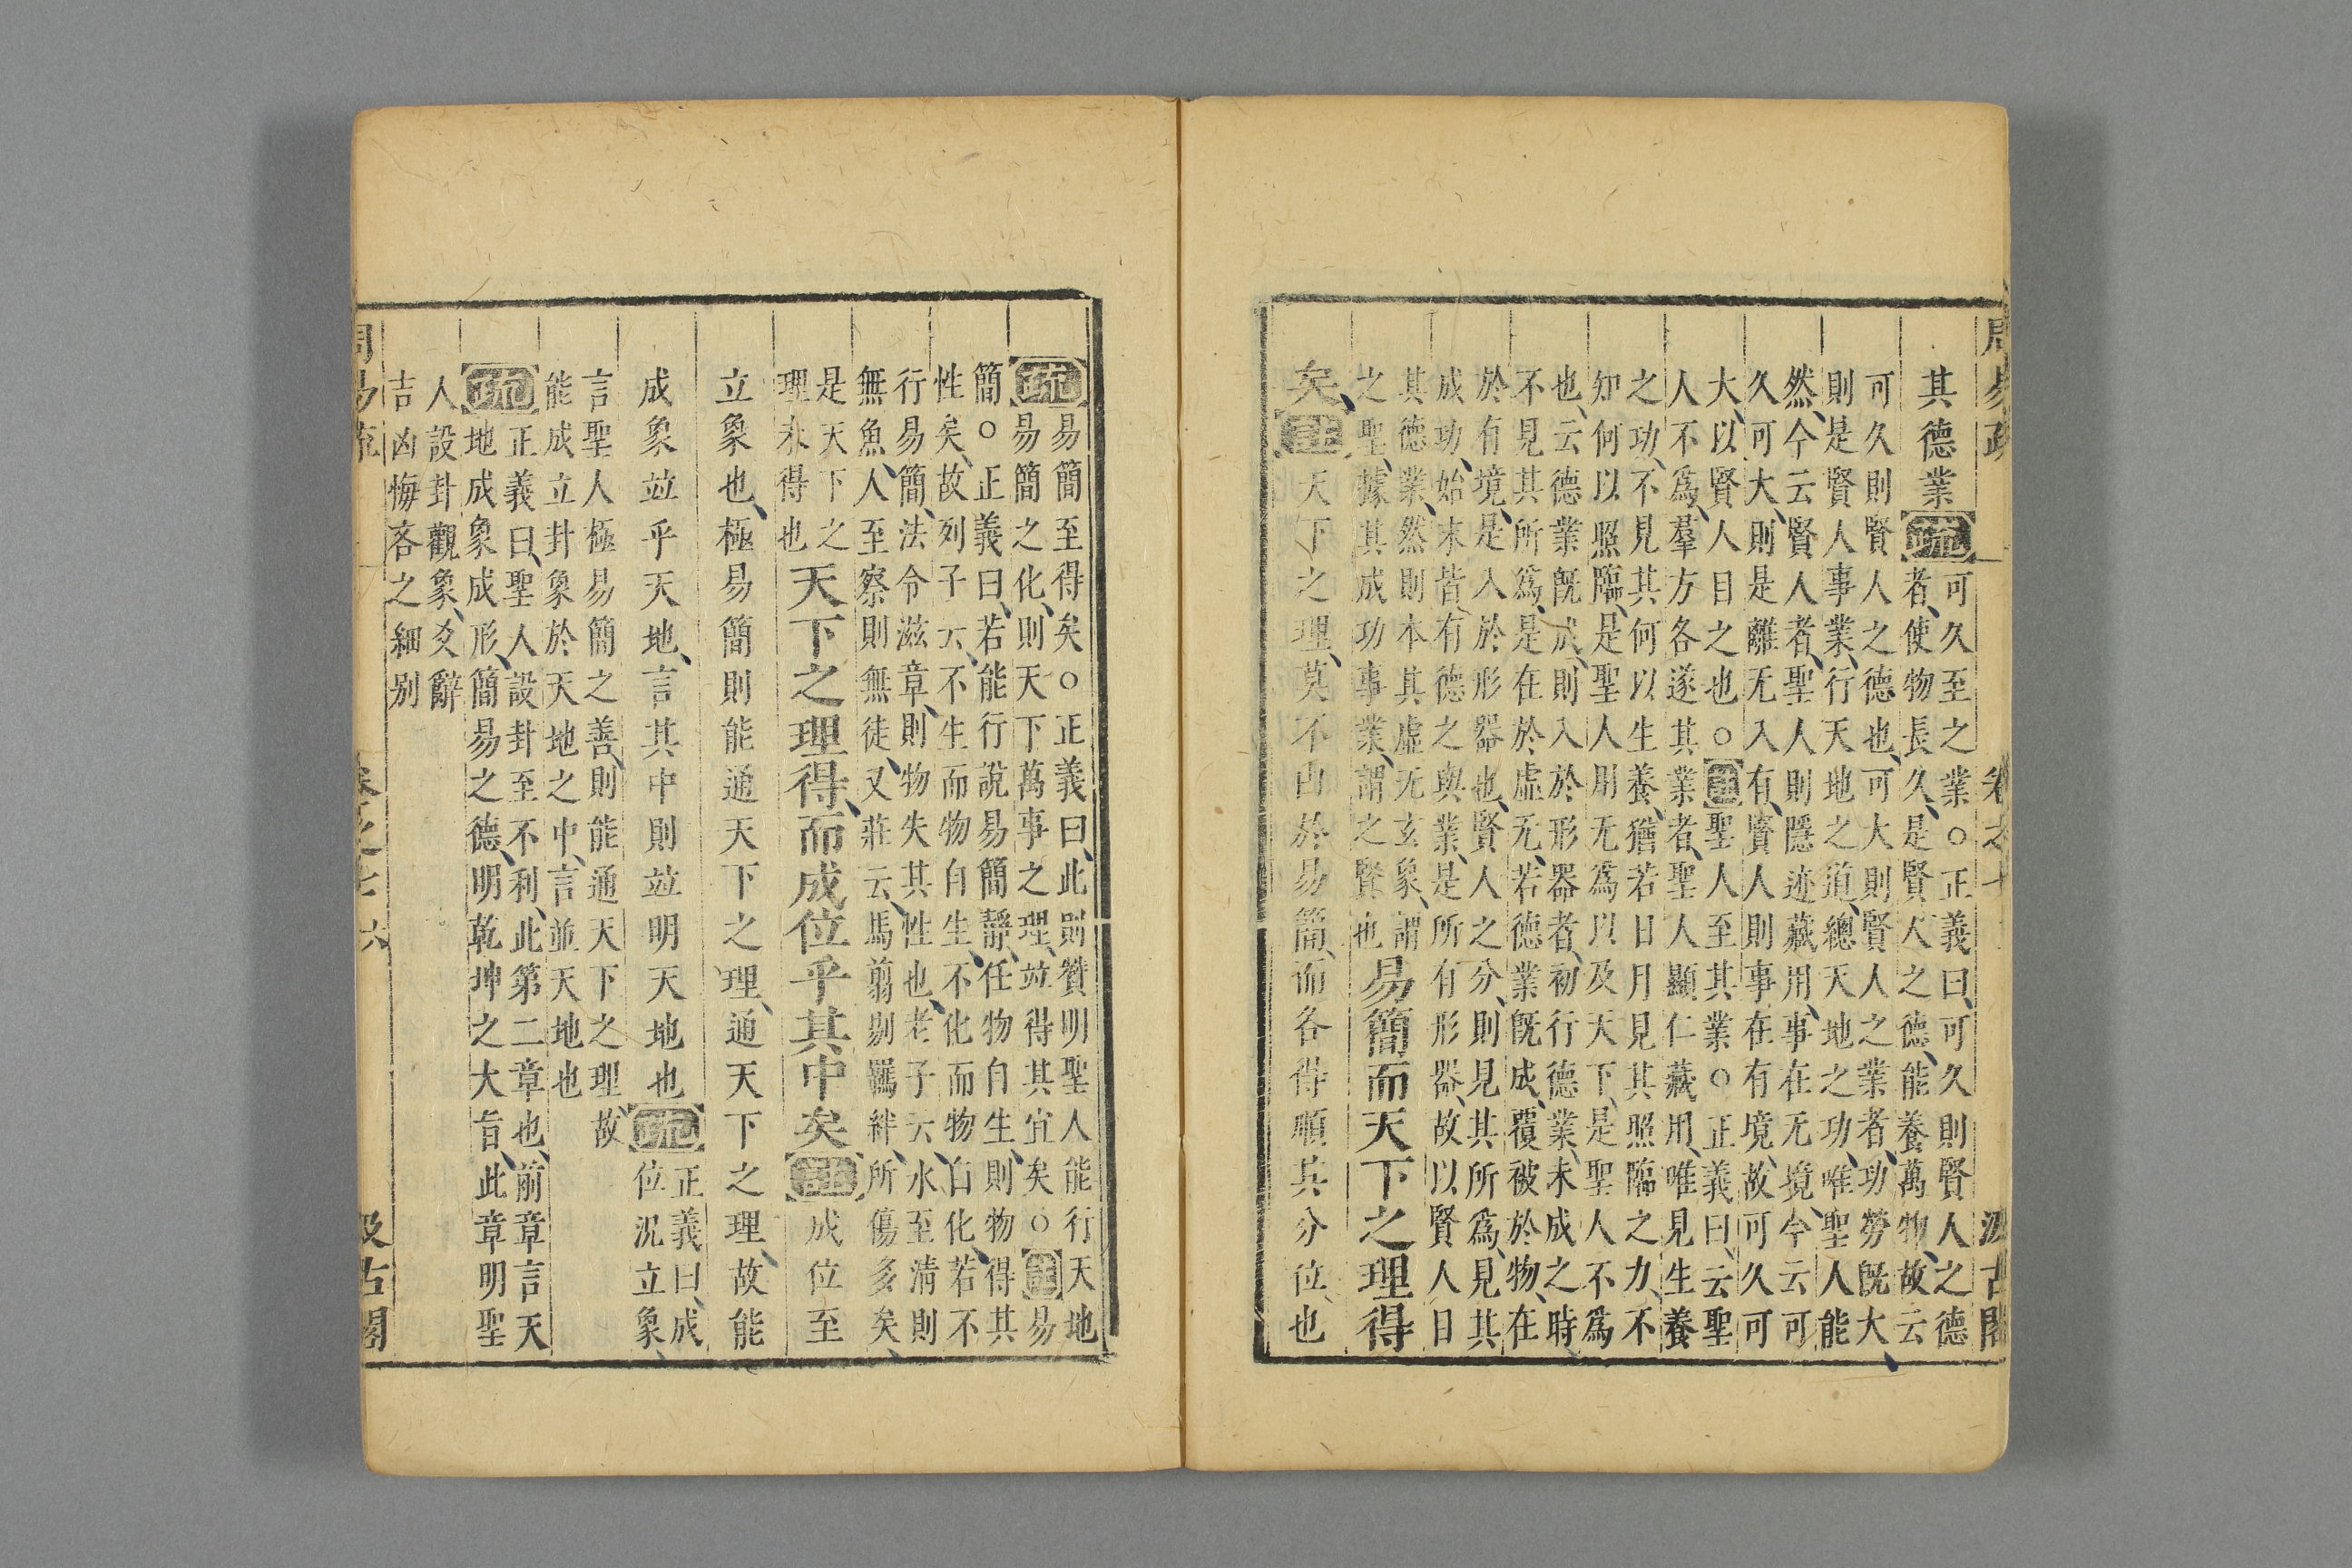 周易疏 卷之七 汲古閣
其德業疏可久至之業○正義曰、可久則賢人之德
者、使物長久、是賢人之德、能養萬物、故云
可久則賢人之德也、可大則賢人之業者、功勞旣大、
則是賢人事業、行天地之道、總天地之功、唯聖人能
然、今云賢人者、聖人則隱迹藏用、事在无境、今云可
久可大、則是離无入有、賢人則事在有境、故可久可
大、以賢人目之也○註聖人至其業○正義曰、云聖
人不爲、羣方各遂其業者、聖人顯仁藏用、唯見生養
之功、不見其何以生養、猶若日月見其照臨之力、不
知何以照臨、是聖人用无爲以及天下、是聖人不爲
也、云德業旣成、則入於形器者、初行德業、未成之時、
不見其所爲、是在於虛无、若德業旣成、覆被於物、在
於有境、是入於形器也、賢人之分、則見其所爲、見其
成功、始末皆有德之與業、是所有形器、故以賢人目
其德業、然則本其虛无玄象、謂
之聖、據其成功事業、謂之賢也
易簡而天下之理得
矣、註天下之理、莫不由於易簡、而各得順其分位也
疏易簡至得矣○正義曰、此則贊明聖人能行天地
易簡之化、則天下萬事之理、竝得其宜矣○註易
簡○正義曰、若能行說易簡靜、任物自生、則物得其
性矣、故列子云、不生而物自生、不化而物自化、若不
行易簡、法令滋章、則物失其性也、老子云、水至清則
無魚、人至察則無徒、又莊云、馬翦剔羈絆、所傷多矣、
是天下之
理未得也
天下之理得、而成位乎其中矣註成位至
立象也、極易簡則能通天下之理、通天下之理、故能
成象竝乎天地、言其中則竝明天地也疏正義曰、成
位況立象、
言聖人極易簡之善、則能通天下之理、故
能成立卦象於天地之中、言並天地也
疏正義曰、聖人設卦至不利、此第二章也、前章言天
地成象成形、簡易之德、明乾坤之大旨、此章明聖
人設卦觀象、爻辭
吉凶悔吝之細別
周易疏 卷之七 六 汲古閣